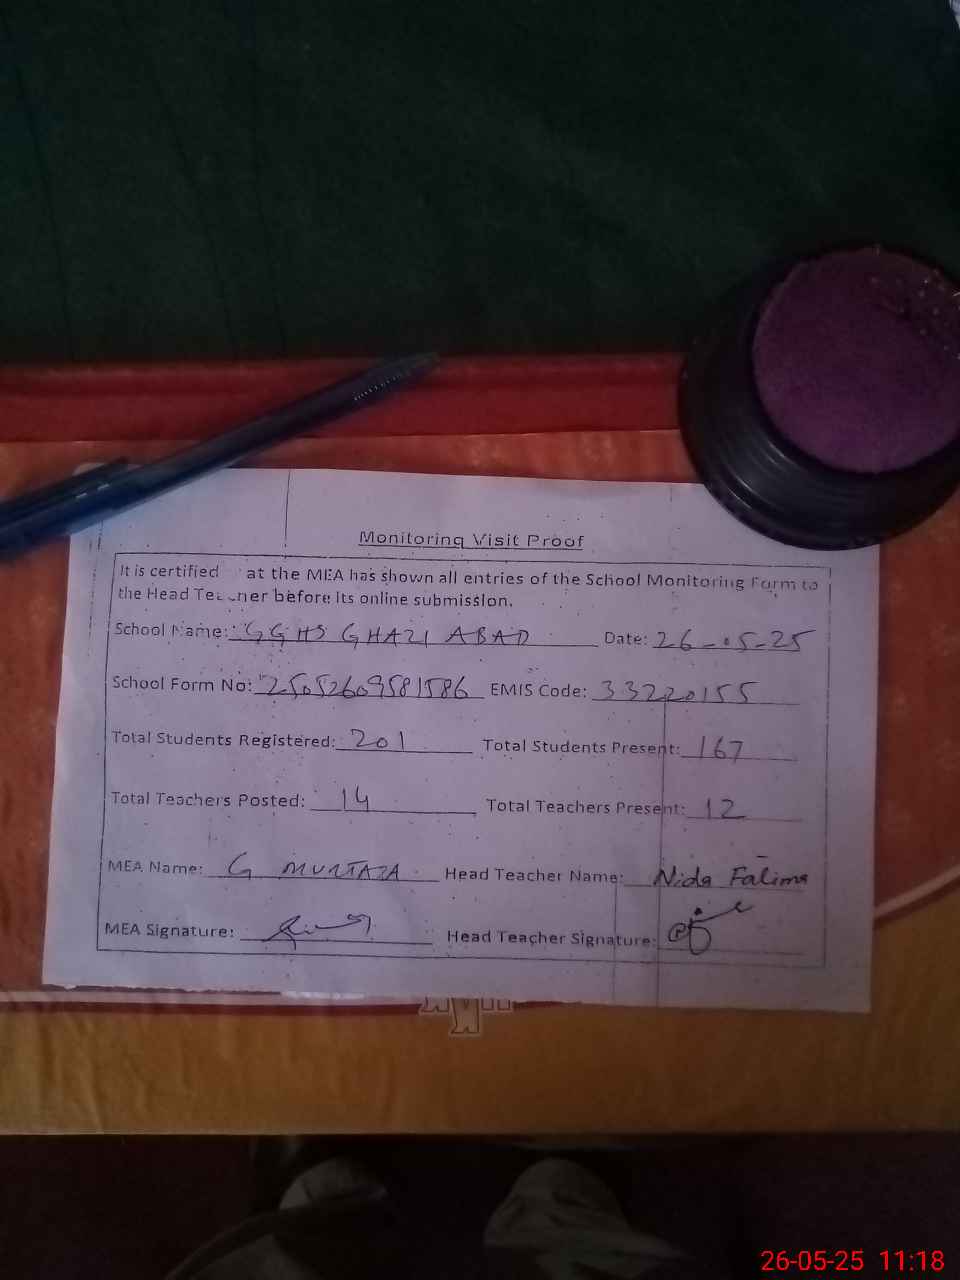 Monitoring Visit Proof
It is certified at the MEA has shown all entries of the School Monitoring Form to
the Head Teacher before its online submission.
School Name: GGHS GHAZI ABAD Date: 26-05-25
School Form No: 25052609581586 EMIS Code: 33220155
Total Students Registered: 201 Total Students Present: 167
Total Teachers Posted: 14 Total Teachers Present: 12
MEA Name: G MURTAZA Head Teacher Name: Nida Fatima
MEA Signature: Head Teacher Signature:
26-05-25 11:18